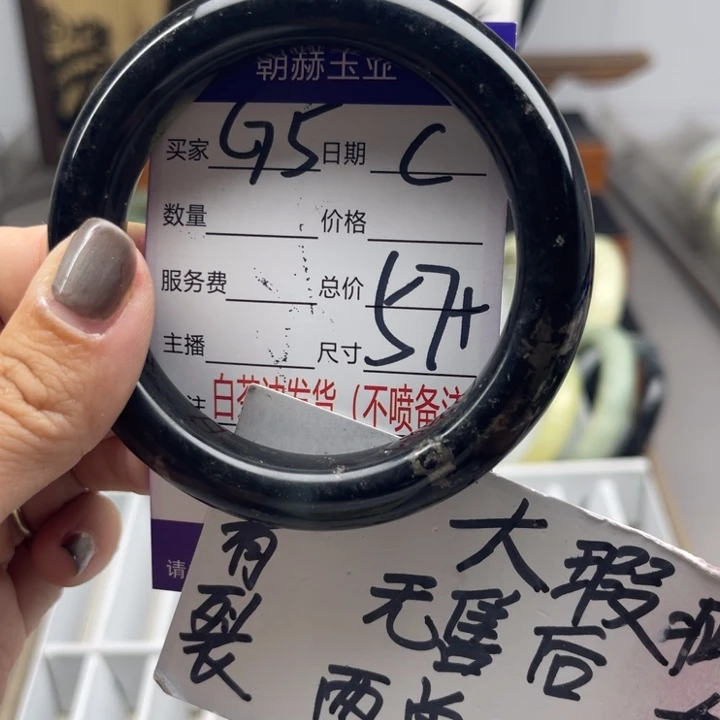 朝赫玉业
买家 G5 日期 C
数量 价格
服务费 总价
主播 尺寸 57+
注 白茶波发货（不喷备注
请
有裂
大瑕
无售后
两